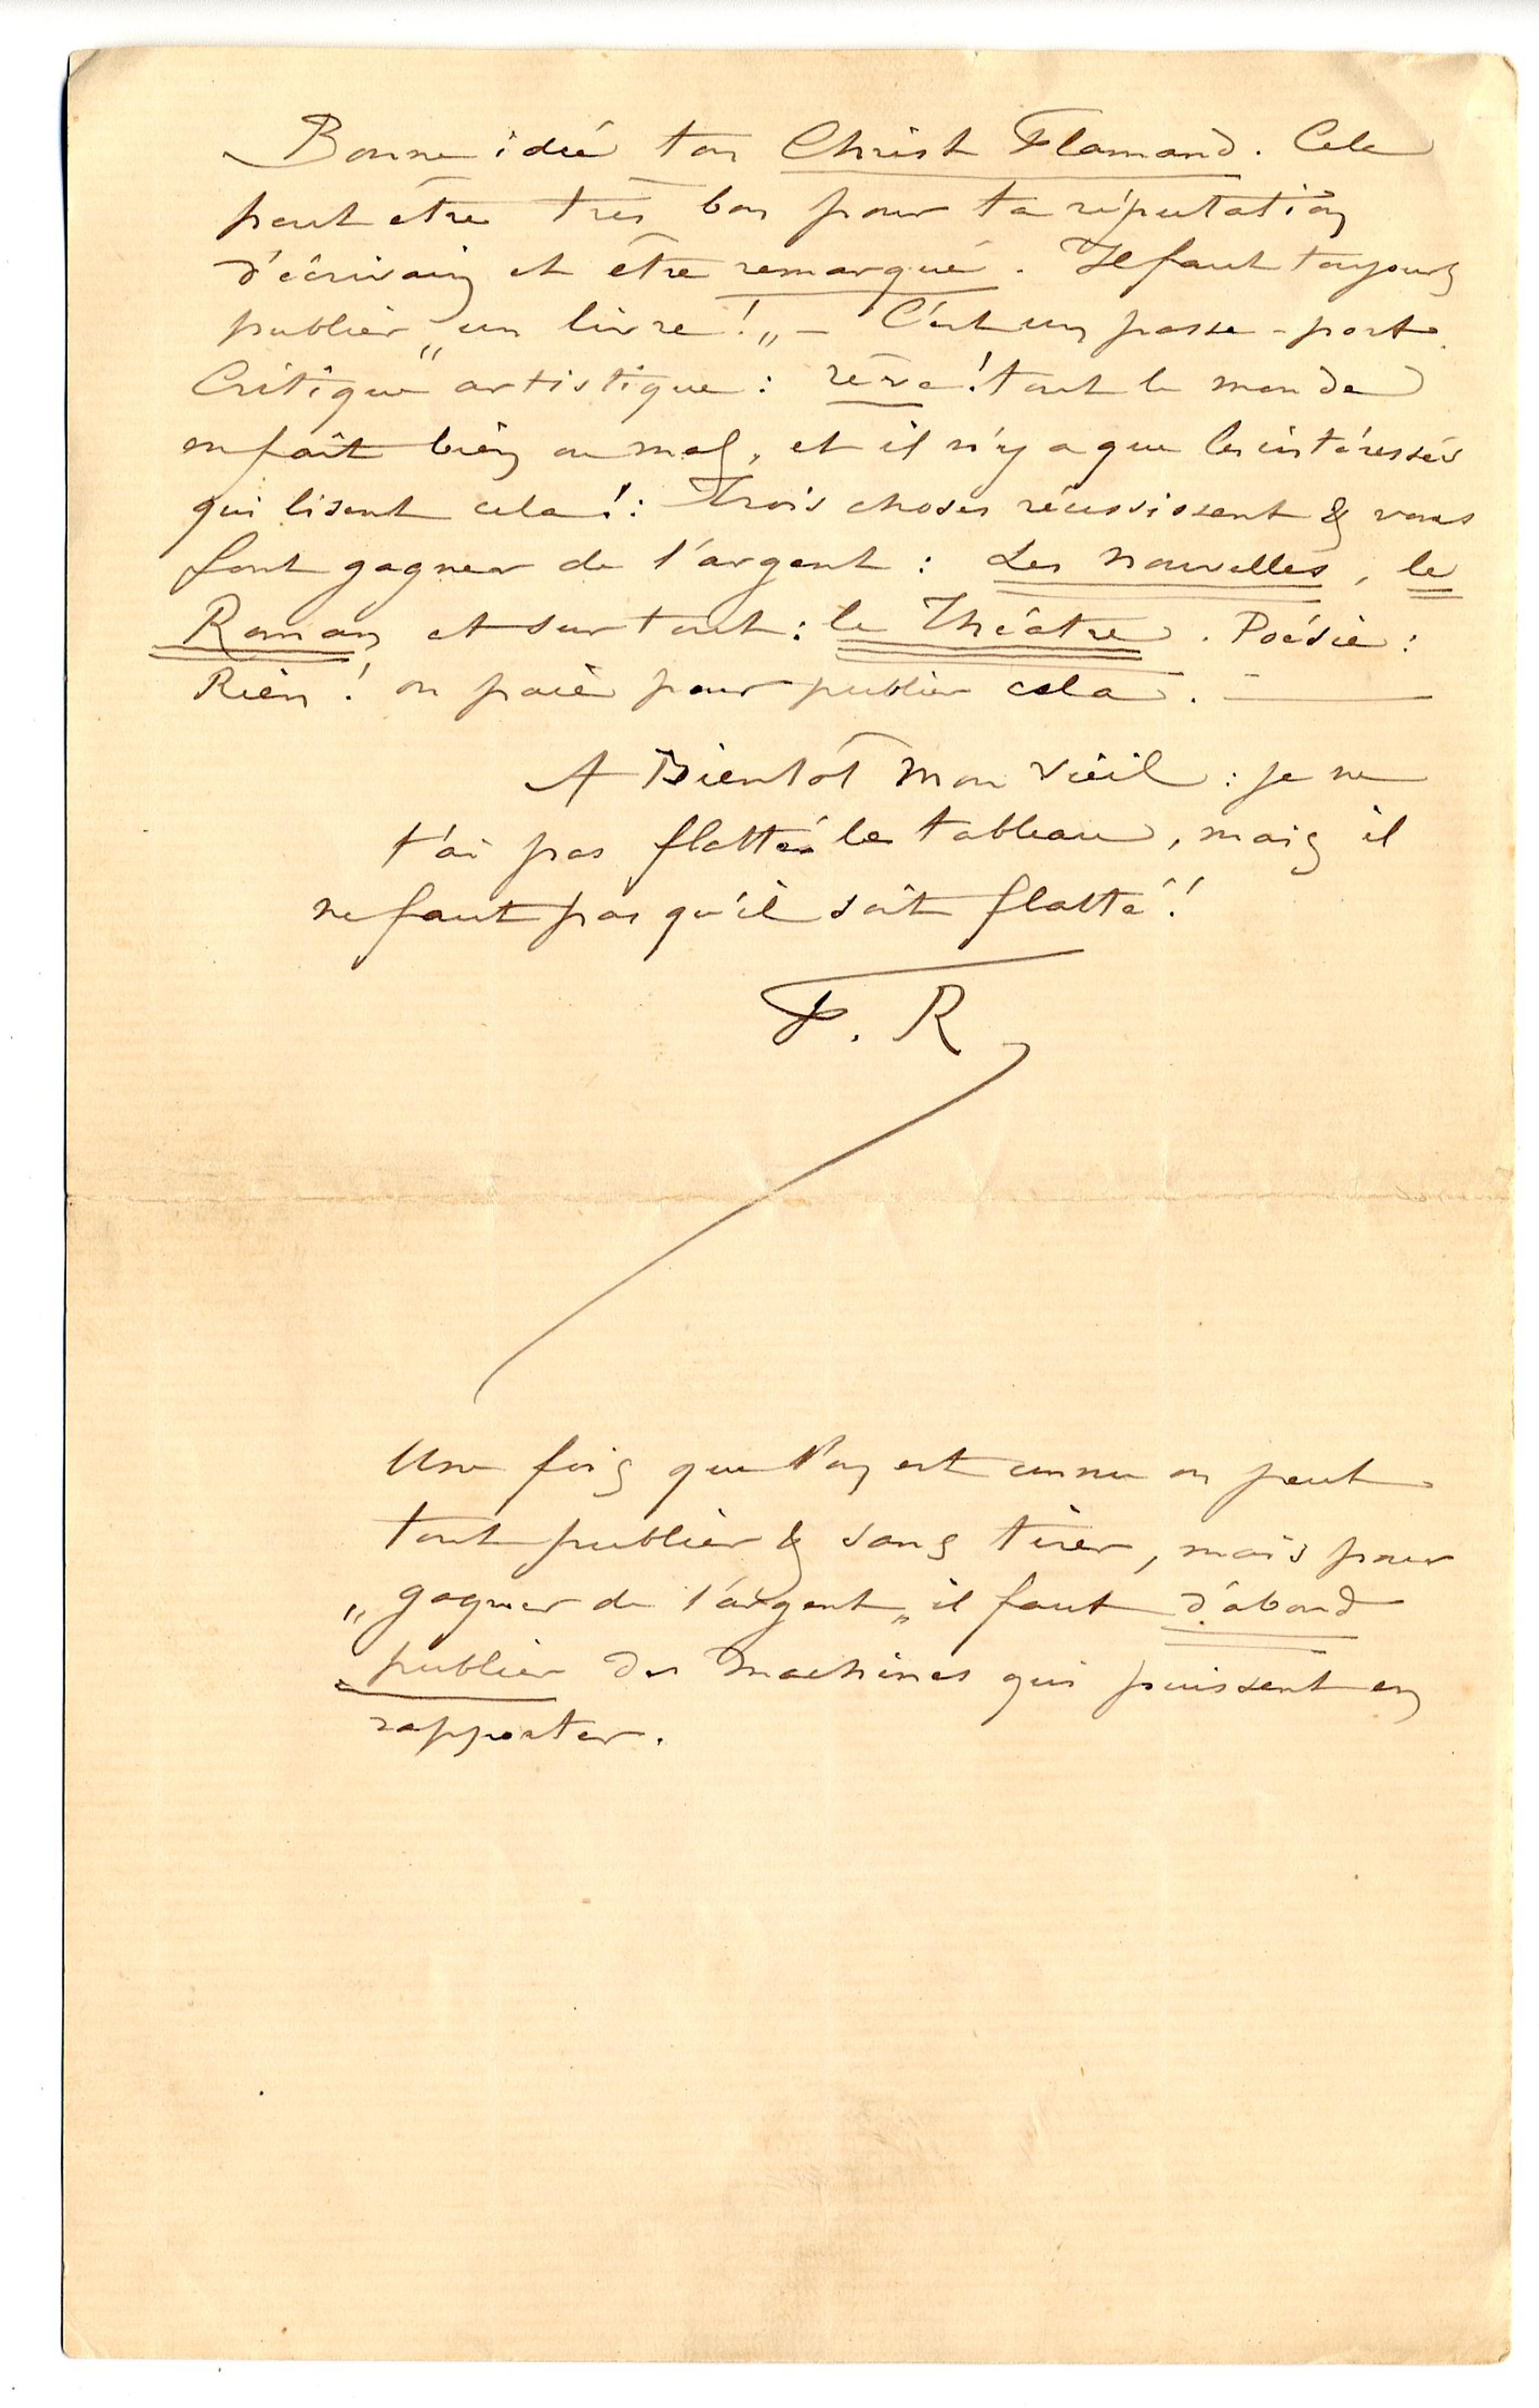 Bonne idée ton Christ Flamand. Cela
peut être très bon pour ta réputation
d'écrivain et être remarqué. Il faut toujours
publier „un livre!„ – C'est un passe-port.
Critique artistique : rêve! tout le monde
en fait bien ou mal, et il n'y a que les intéressés
qui lisent cela!: Trois choses réussissent & vous
font gagner de l'argent : Les nouvelles, le
Roman et surtout : le Théâtre. Poésie :
Rien! on paie pour publier cela. —
A Bientôt mon vieil : je ne
t'ai pas flatté le tableau, mais il
ne faut pas qu'il soit flatté!
F. R
Une fois que l'on est connu on peut
tout publier & sans tirer, mais pour
„gagner de l'argent„ il faut d'abord
publier des machines qui puissent en
rapporter.